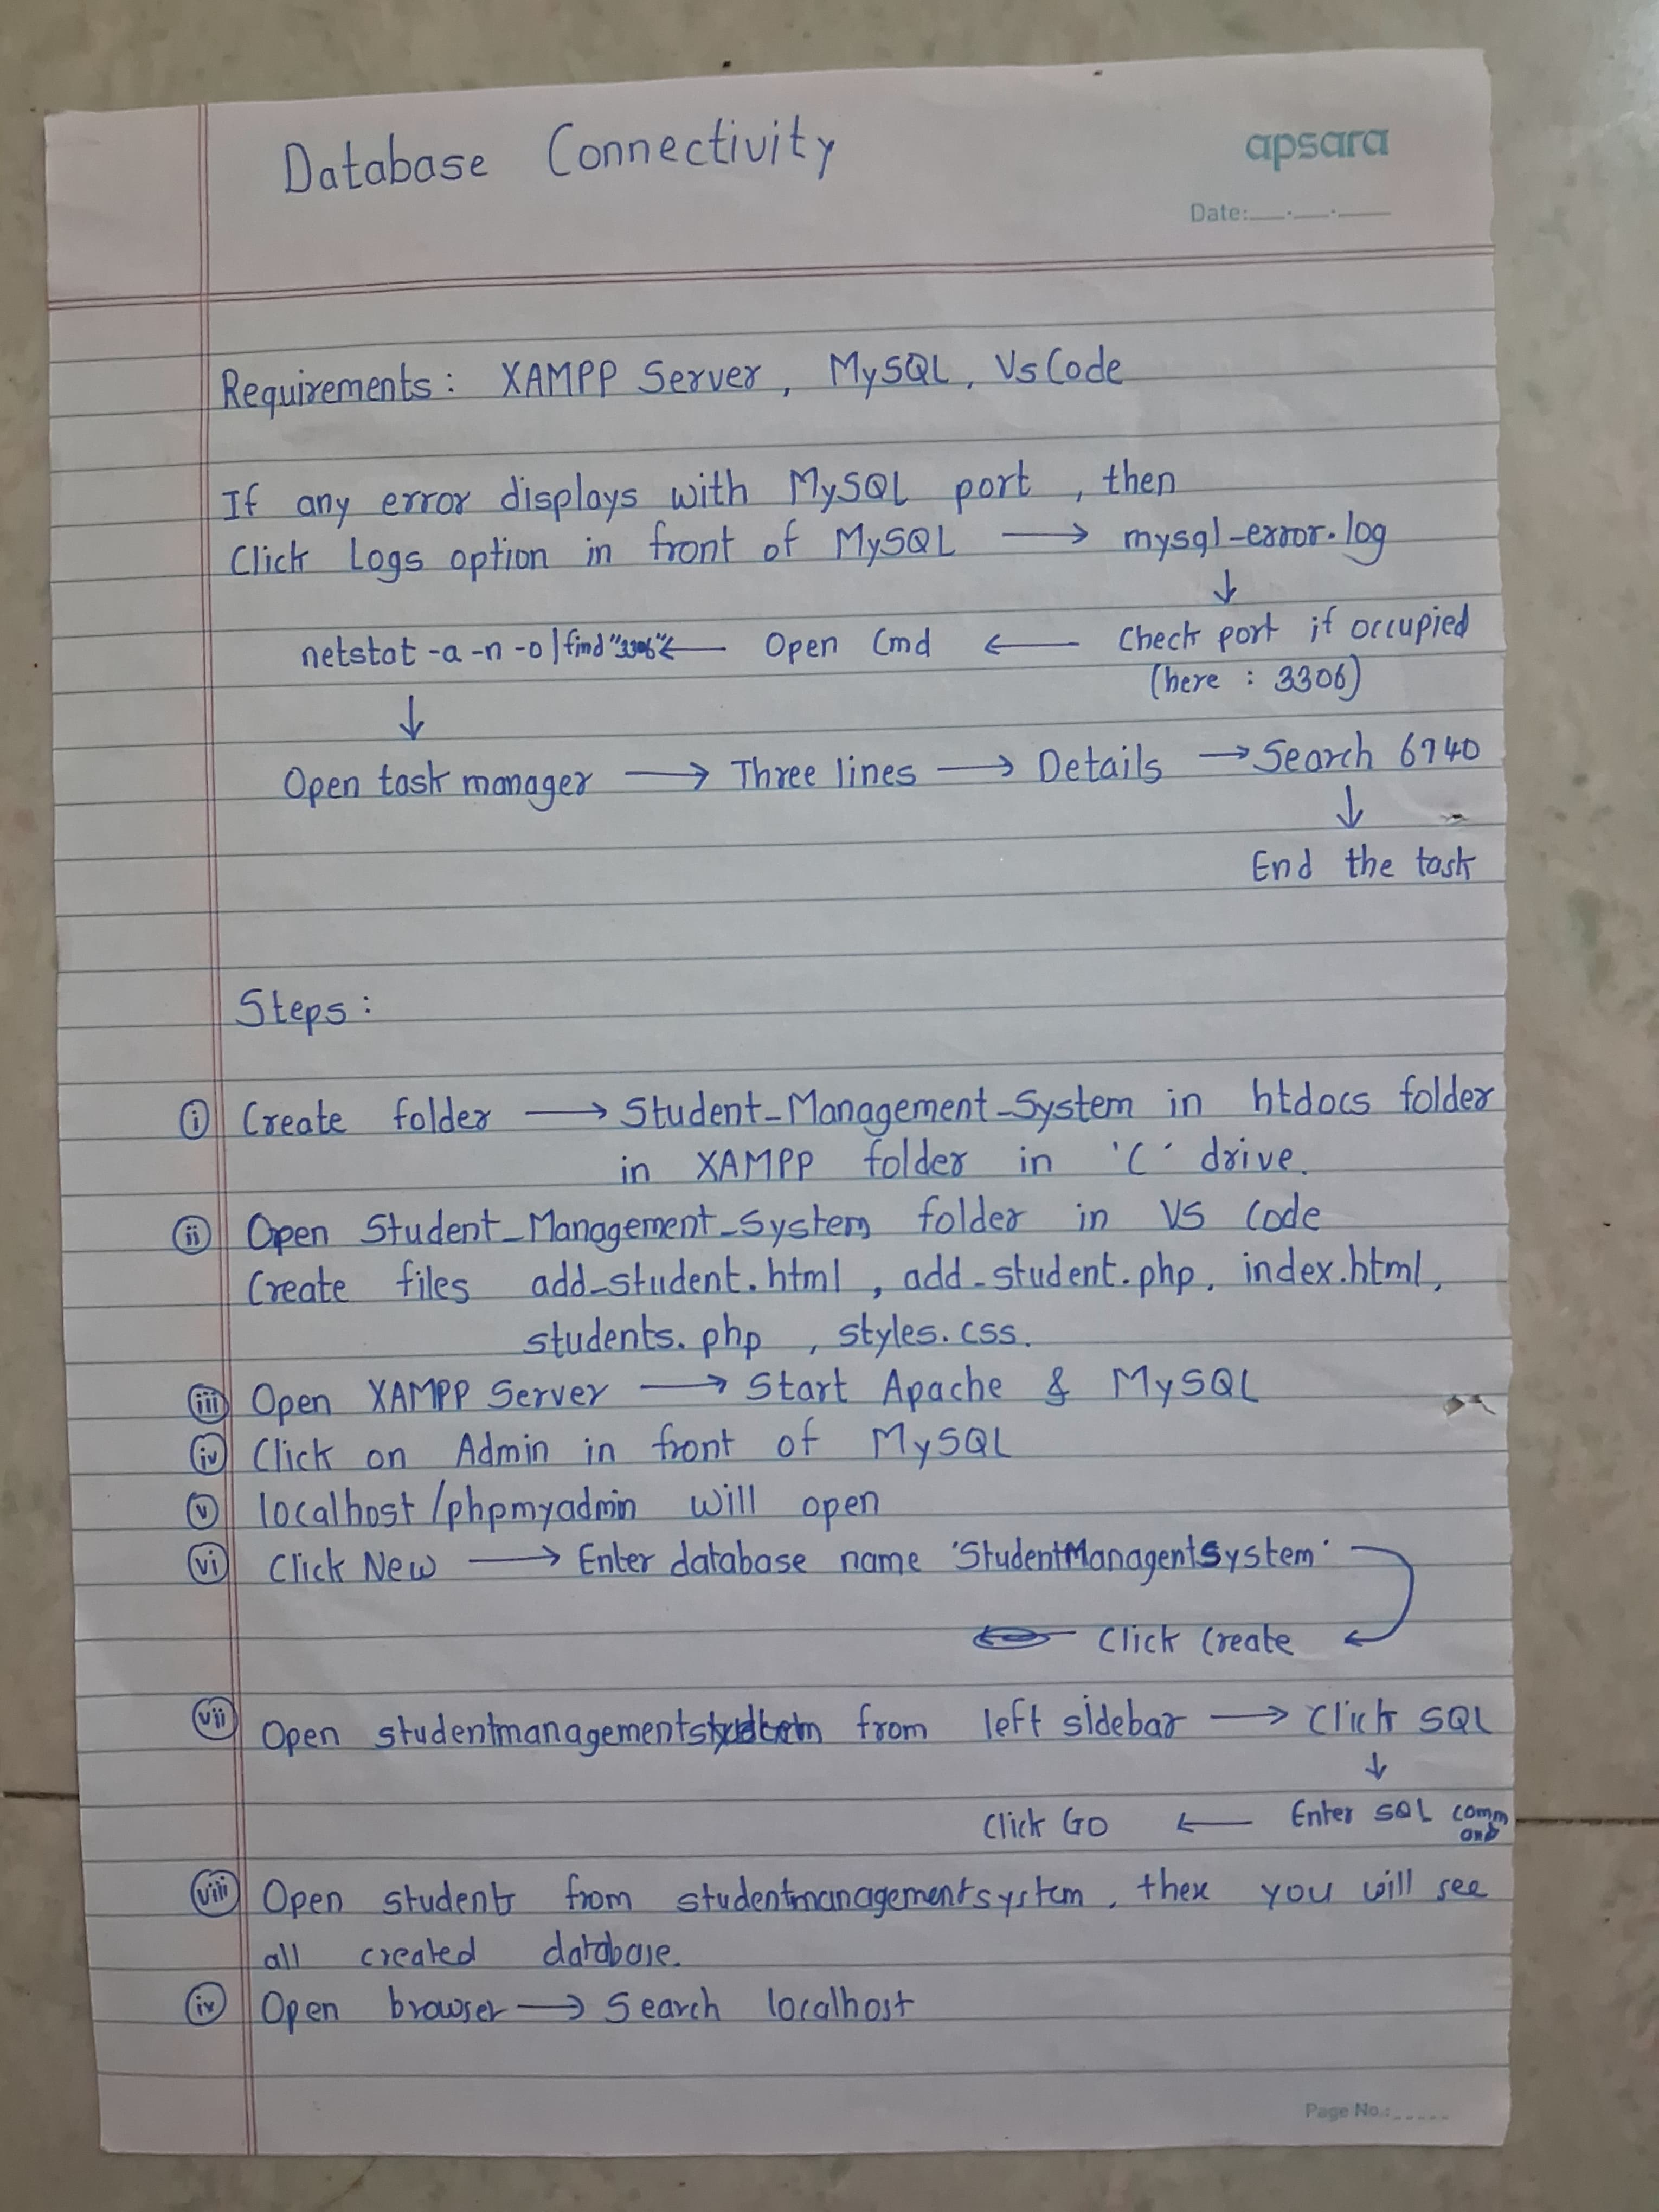 Database Connectivity
apsara
Date:
Requirements: XAMPP Server, MySQL, Vs Code
If any error displays with MySQL port, then
Click Logs option in front of MySQL → mysql_error.log
↓
netstat -a -n -o | find "3306" ← Open Cmd ← Check port if occupied
(here : 3306)
↓
Open task manager → Three lines → Details → Search 6940
↓
End the task
Steps:
(i) Create folder → Student_Management_System in htdocs folder
in XAMPP folder in 'C' drive.
(ii) Open Student_Management_System folder in VS Code
Create files add_student.html, add_student.php, index.html,
students.php, styles.css.
(iii) Open XAMPP Server → Start Apache & MySQL
(iv) Click on Admin in front of MySQL
(v) localhost/phpmyadmin will open
(vi) Click New → Enter database name 'StudentManagentSystem'
Click Create
(vii) Open from left sidebar → Click SQL
↓
Click Go ← Enter SQL comm
and
(viii) Open students from studentmanagementsystem, then you will see
all created database.
(ix) Open browser → Search localhost
Page No.: